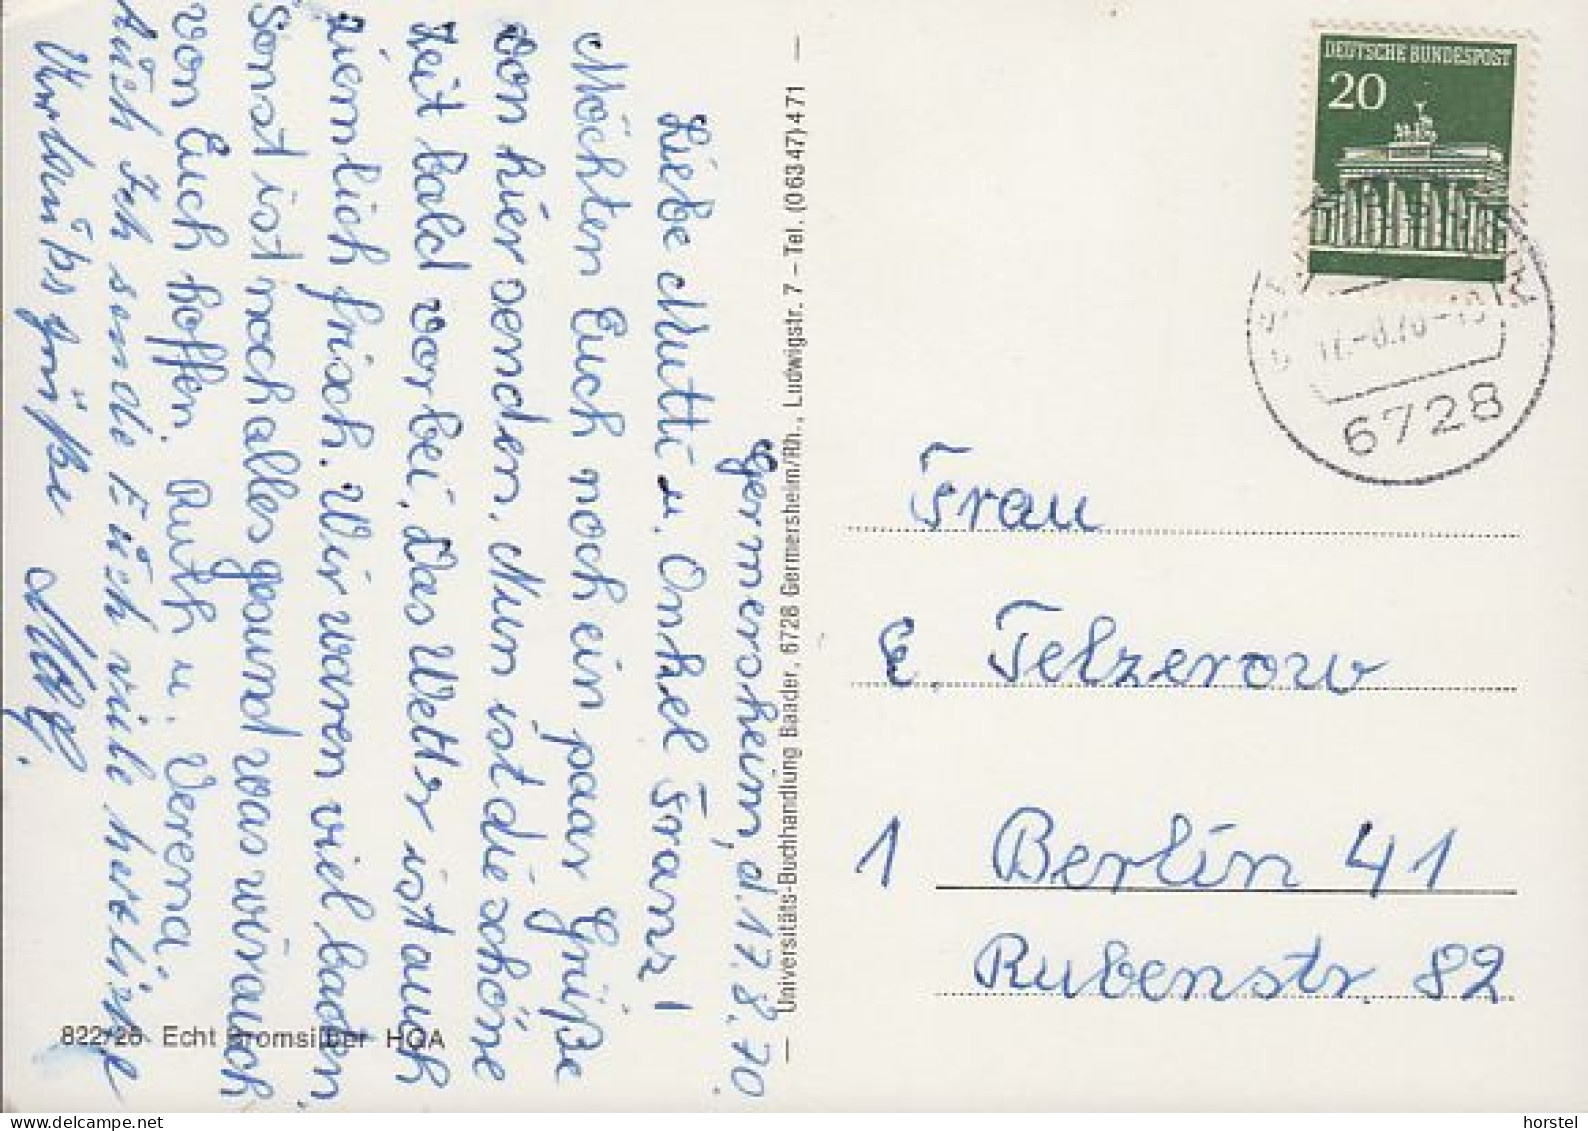 Germersheim, d. 17.8.70.
Liebe Mutti u. Onkel Franz!
Möchten Euch noch ein paar Grüße
von hier senden. Nun ist die schöne
Zeit bald vorbei. Das Wetter ist auch
ziemlich frisch. Wir waren viel baden
Sonst ist noch alles gesund was wir auch
von Euch hoffen. Ruth u. Verena.
Auch Ich sende Euch viele herzliche
Urlaubsgrüße
822/26 Echt Bromsilber HQA
Universitäts-Buchhandlung Baader, 6728 Germersheim/Rh., Ludwigstr. 7 – Tel. (06347) 471
DEUTSCHE BUNDESPOST
20
6728
Frau
E. Telzerow
1 Berlin 41
Rubenstr. 82
horstel